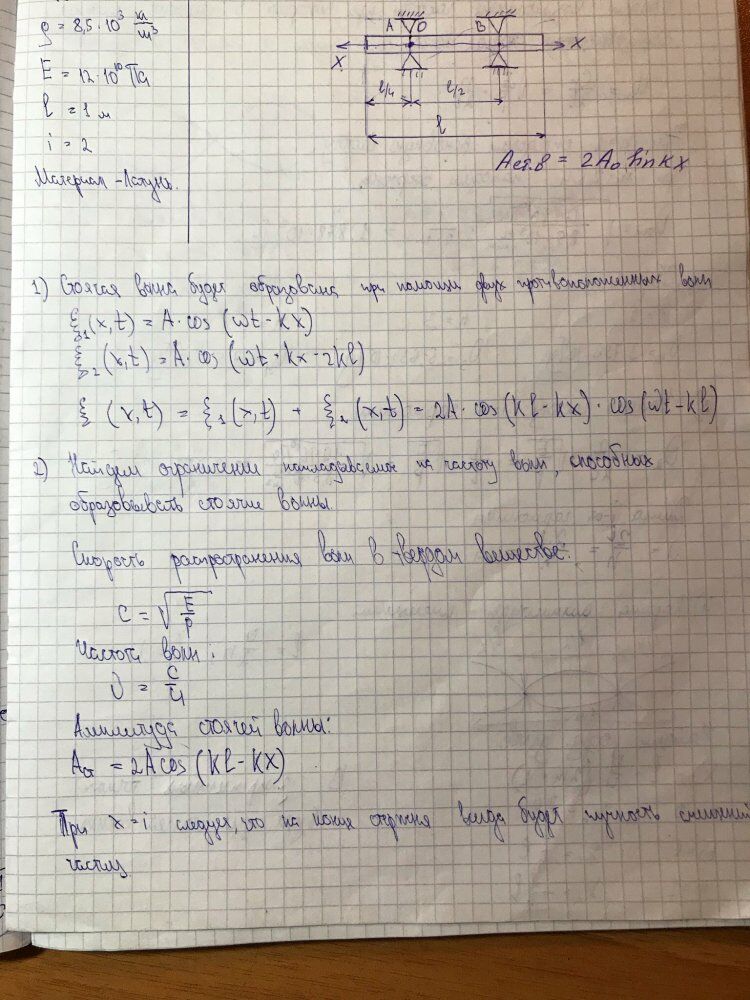 ρ = 8,5·10³ кг/м³
E = 12·10¹⁰ Па
l = 1 м
i = 2
Материал - Латунь.
A O B
X X
l/4 l/2
l
Aст.в = 2A₀ sin kx
1) Стоячая волна будет образована при помощи двух противоположенных волн
ξ₁(x,t) = A·cos(ωt-kx)
ξ₂(x,t) = A·cos(ωt+kx-2kl)
ξ(x,t) = ξ₁(x,t) + ξ₂(x,t) = 2A·cos(kl-kx)·cos(ωt-kl)
2) Найдем ограничении накладываемое на частоту волн, способных
образовывать стоячие волны.
Скорость распространения волн в твердом веществе:
c = √(E/ρ)
Частота волн:
Амплитуда стоячей волны:
Aст = 2A cos(kl-kx)
При x=i следует, что на конце стержня всегда будет пучность смещений
частиц